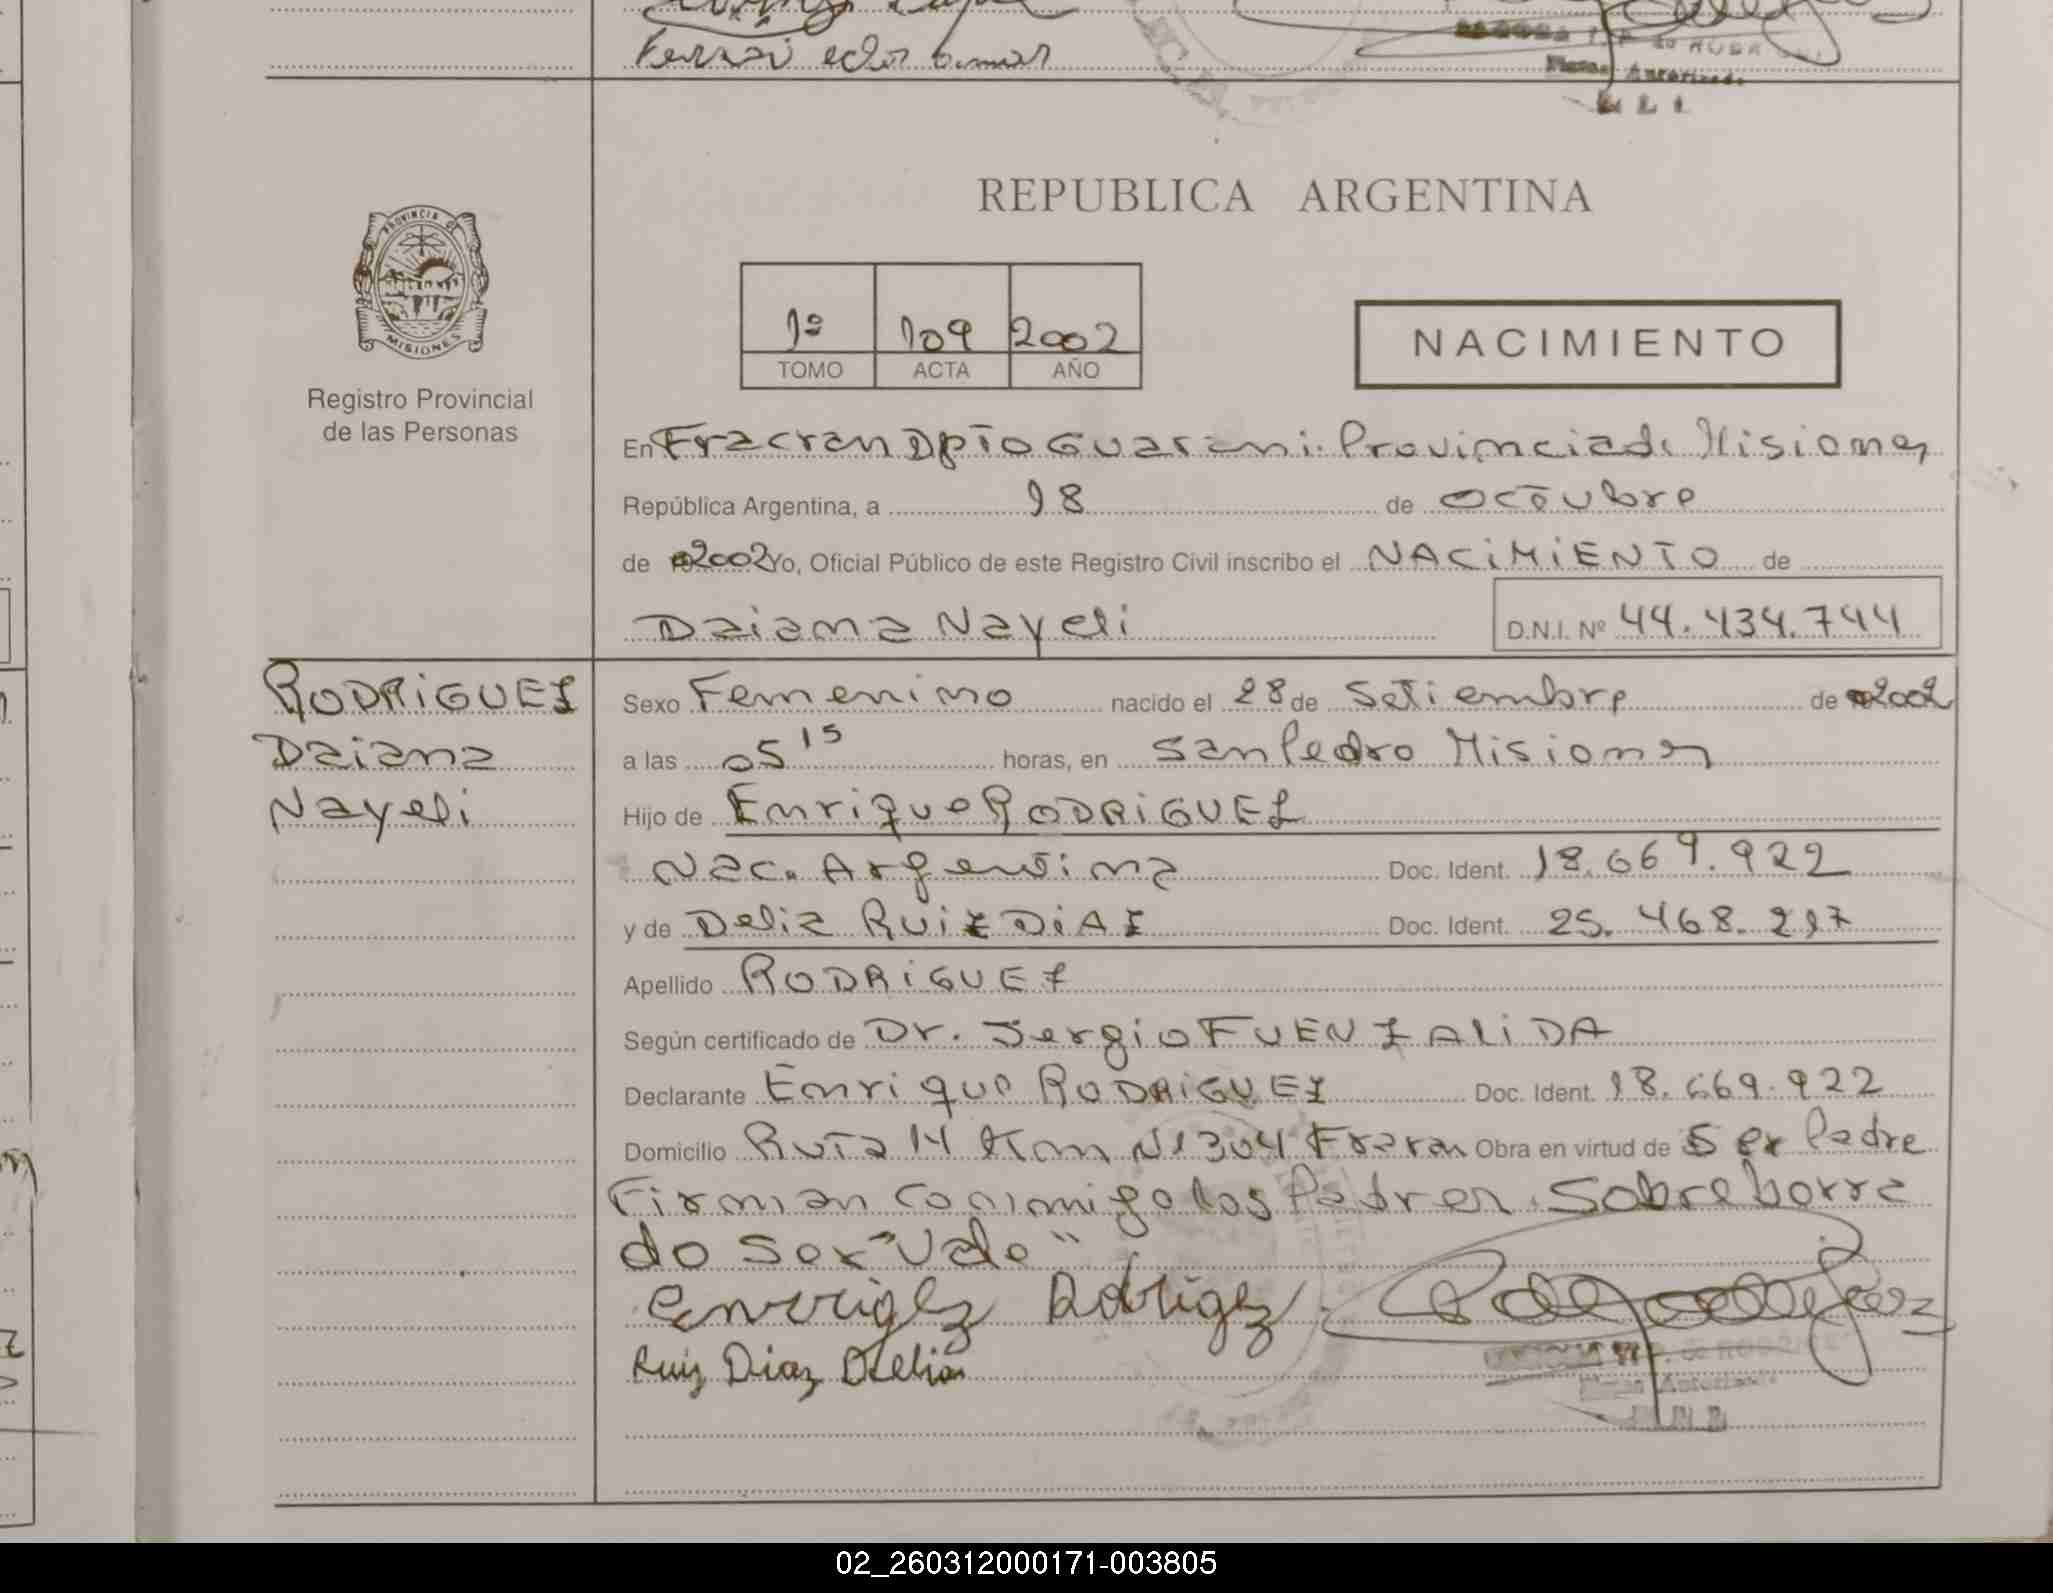 Ferrari
REPUBLICA ARGENTINA
PROVINCIA DE
MISIONES
1º 109 2002
TOMO ACTA AÑO
NACIMIENTO
Registro Provincial
de las Personas
En Fracran Dpto Guarani. Provincia de Misiones
República Argentina, a 18 de octubre
de 2002 Yo, Oficial Público de este Registro Civil inscribo el NACIMIENTO de
Daiana Nayeli D.N.I. Nº 44.434.744
RODRIGUEZ
Daiana
Nayeli
Sexo Femenino nacido el 28 de Setiembre de 2002
a las 05 15 horas, en San Pedro Misiones
Hijo de Enrique RODRIGUEZ
Nac. Argentina Doc. Ident. 18.669.922
y de Delia RUIZ DIAZ Doc. Ident. 25.468.217
Apellido RODRIGUEZ
Según certificado de Dr. Sergio FUENZALIDA
Declarante Enrique RODRIGUEZ Doc. Ident. 18.669.922
Domicilio Ruta 14 Km Nº 1304 Fracran Obra en virtud de Ser Padre
Firman conmigo los Padres. Sobreborra
do Ser "Vale"
Enrriqez Rodrigez
Ruiz Diaz Delia
02_260312000171-003805